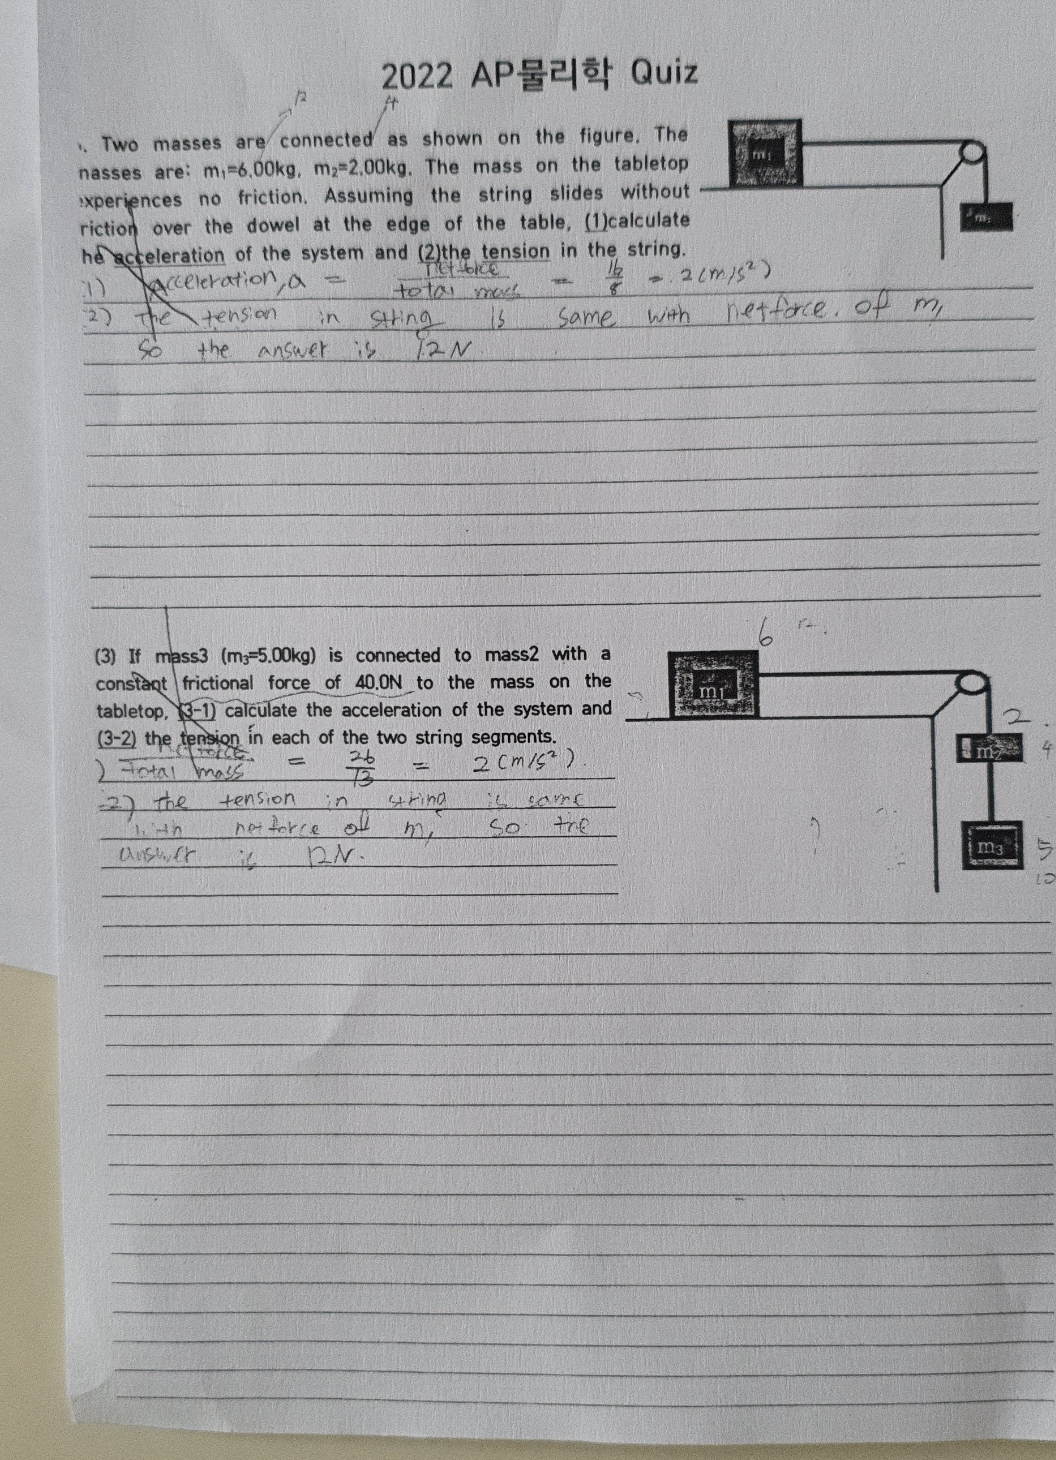 2022 AP물리학 Quiz
12
4
Two masses are connected as shown on the figure. The
nasses are: m₁=6.00kg, m₂=2.00kg. The mass on the tabletop
experiences no friction. Assuming the string slides without
riction over the dowel at the edge of the table, (1)calculate
he acceleration of the system and (2)the tension in the string.
m₁
1) Acceleration, a = netforce / total mass = 16/8 = 2(m/s²)
2) The tension in string is same with netforce of m₁
so the answer is 12N
(3) If mass3 (m₃=5.00kg) is connected to mass2 with a
constant frictional force of 40.0N to the mass on the
tabletop, (3-1) calculate the acceleration of the system and
(3-2) the tension in each of the two string segments.
6
m₁
2
m₂
4
m₃
5
10
) netforce / Total mass = 26/13 = 2(m/s²).
-2) the tension in string is same
with netforce of m, so the
answer is 12N.